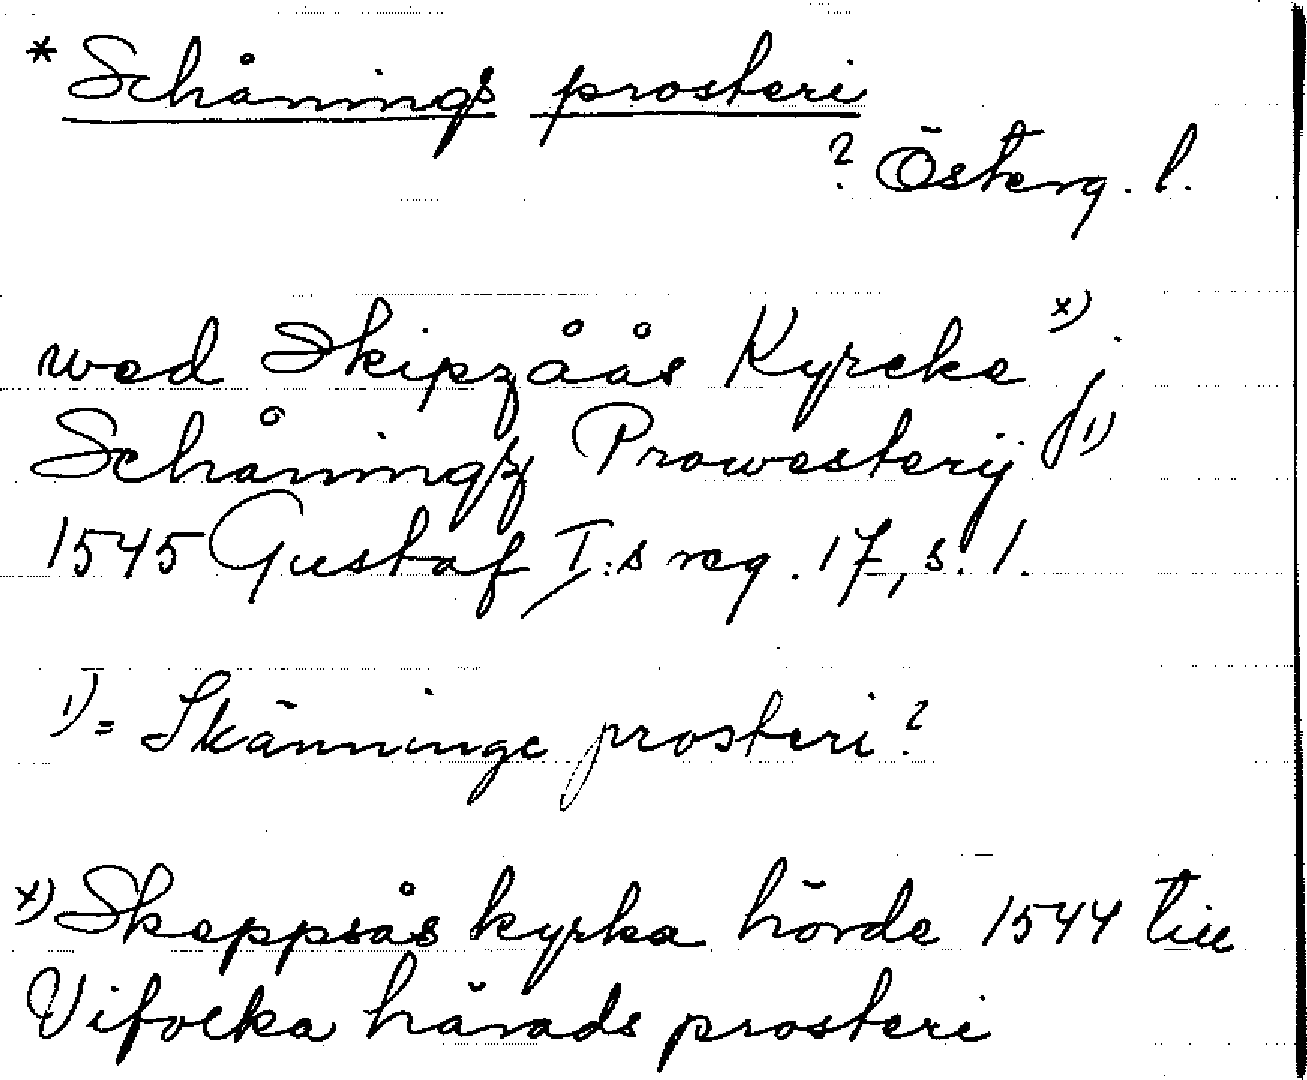 * Schånings prosteri
? Österg. l.
wed Skipzåås Kyrcke x) j
Schåningz Prowesterij 1)
1545 Gustaf I:s reg. 17, s. 1.
1) = Skänninge prosteri?
x) Skeppsås kyrka hörde 1544 till
Vifolka härads prosteri